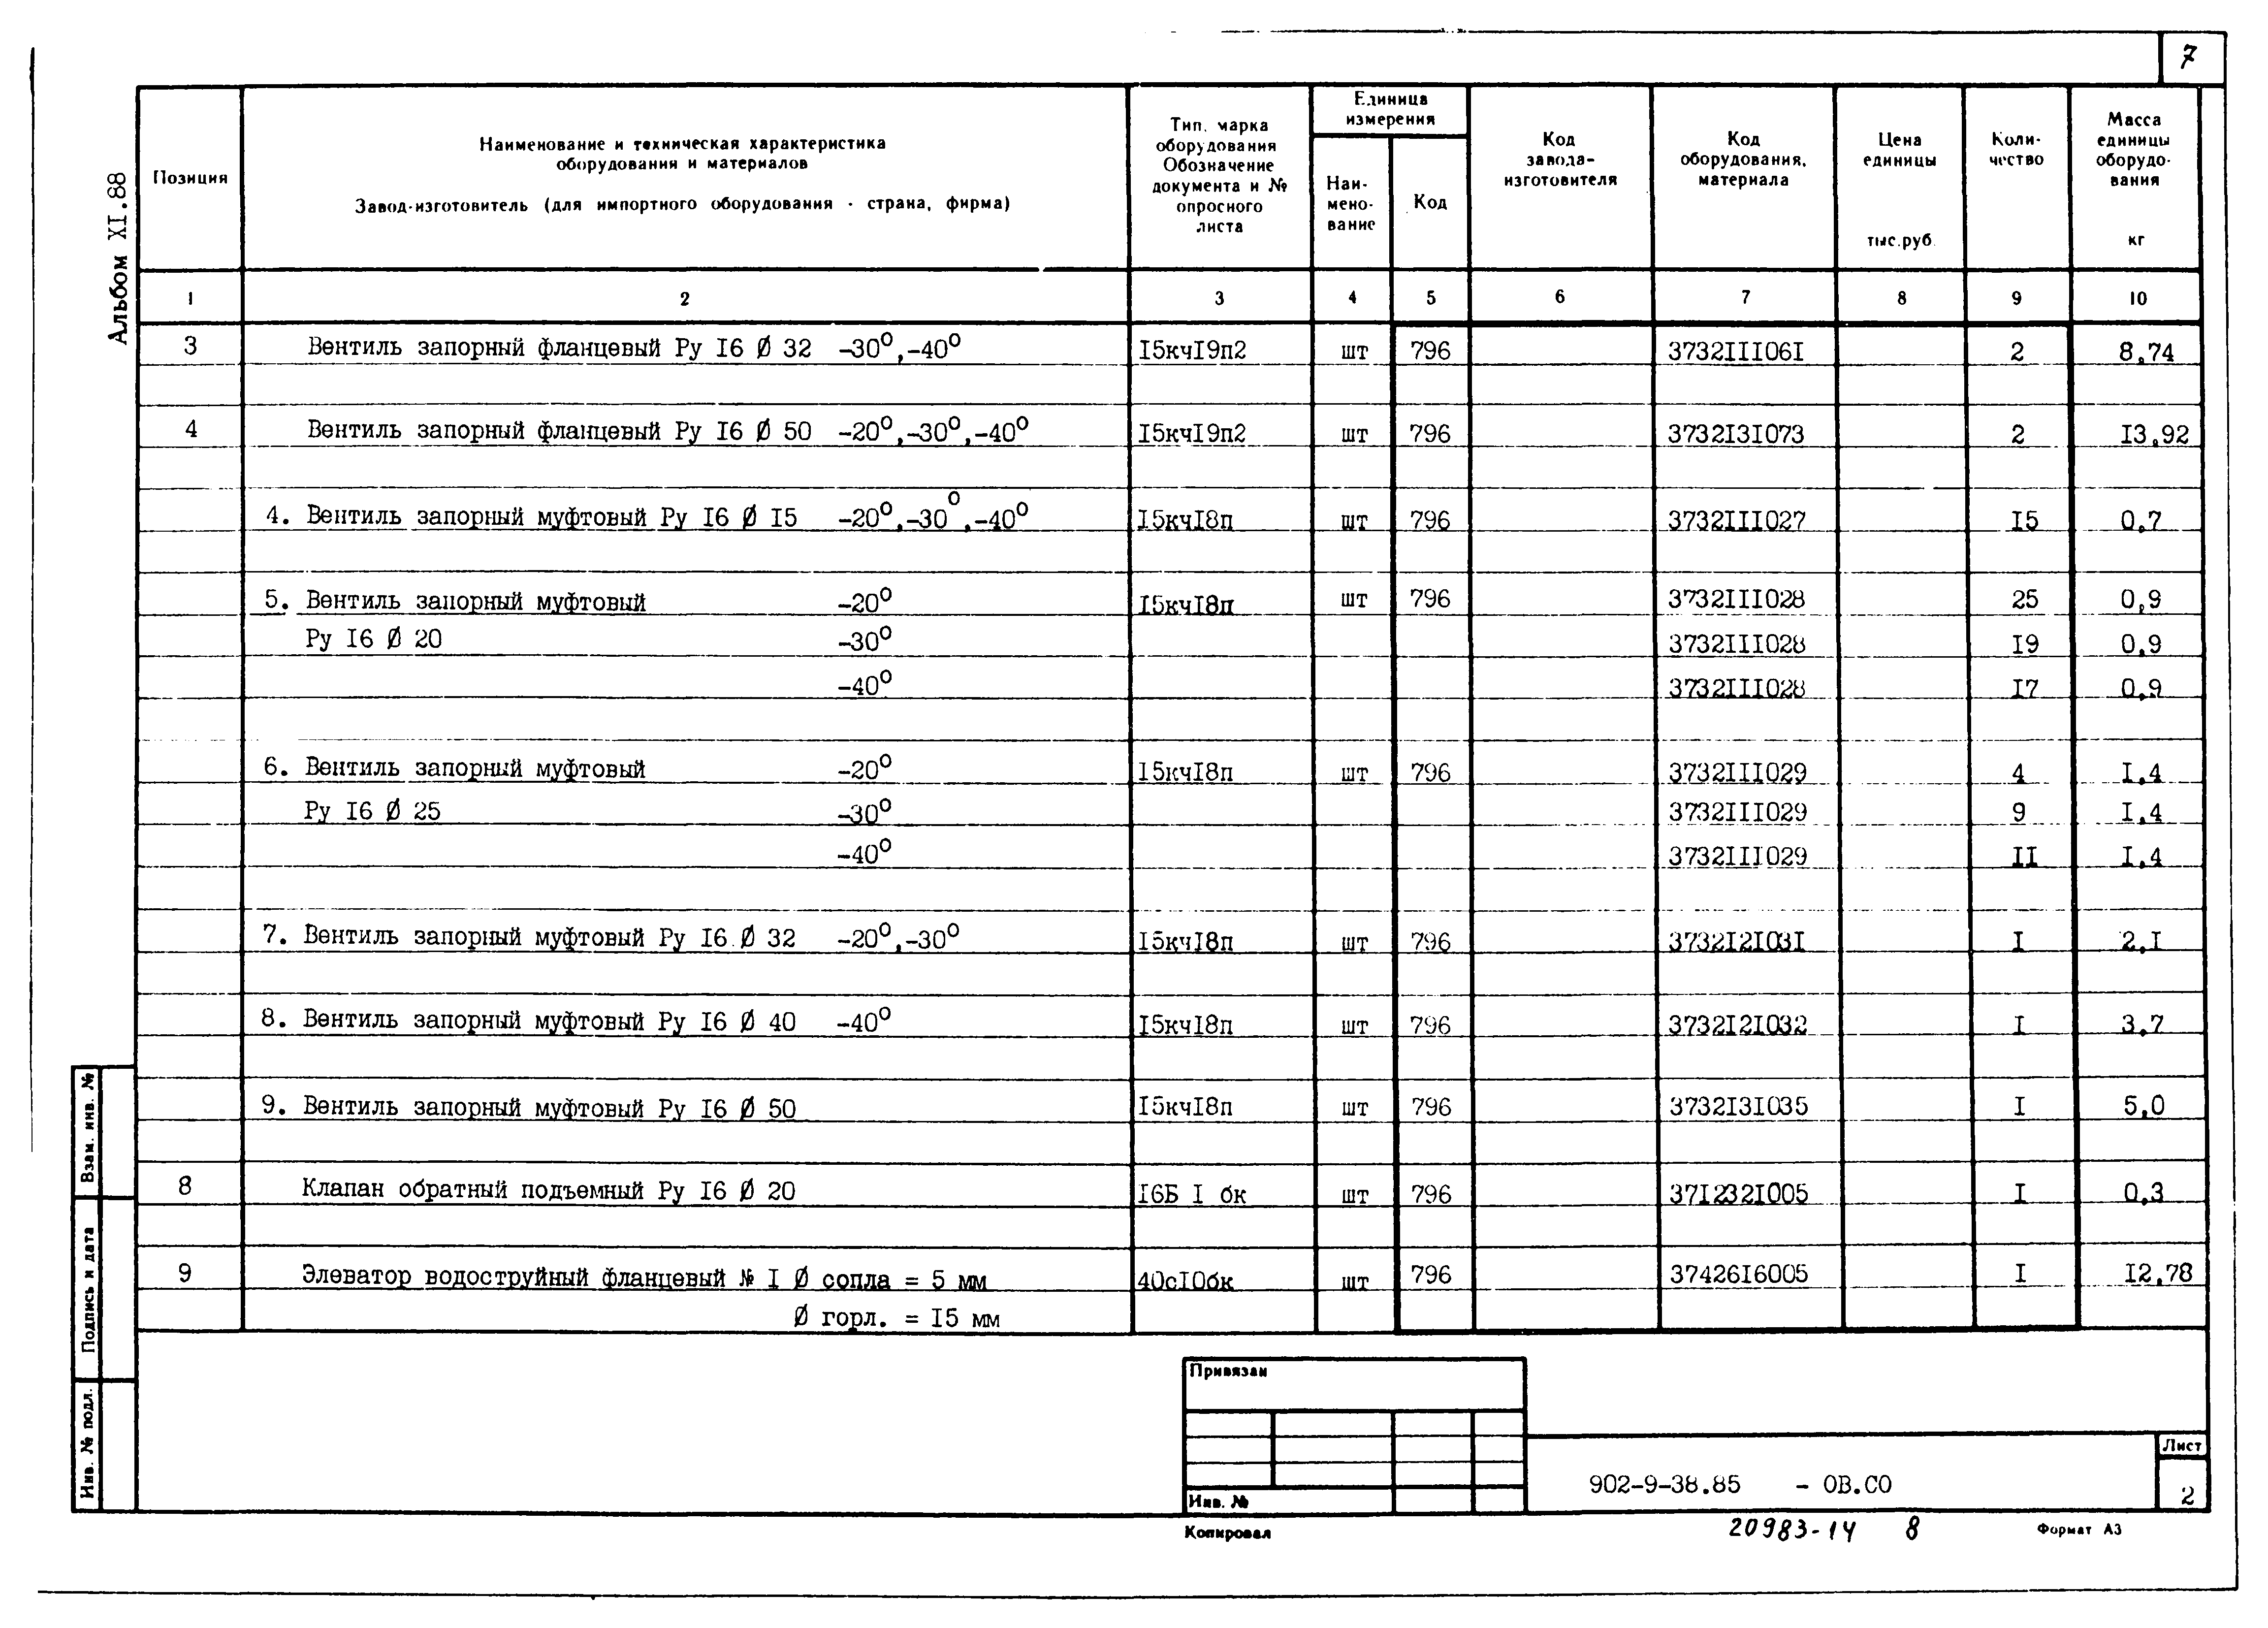 7
Альбом XI.88
Позиция
Наименование и техническая характеристика
оборудования и материалов
Завод-изготовитель (для импортного оборудования - страна, фирма)
Тип, марка
оборудования
Обозначение
документа и №
опросного
листа
Единица
измерения
Наи-
мено-
вание
Код
Код
завода-
изготовителя
Код
оборудования,
материала
Цена
единицы
тыс.руб.
Коли-
чество
Масса
единицы
оборудо-
вания
кг
1 2 3 4 5 6 7 8 9 10
3 Вентиль запорный фланцевый Ру I6 Ø 32 -30°,-40° I5кчI9п2 шт 796 3732III06I 2 8,74
4 Вентиль запорный фланцевый Ру I6 Ø 50 -20°,-30°,-40° I5кчI9п2 шт 796 3732I3I073 2 I3,92
4. Вентиль запорный муфтовый Ру I6 Ø I5 -20°,-30°,-40° I5кчI8п шт 796 3732III027 I5 0,7
5. Вентиль запорный муфтовый -20° I5кчI8п шт 796 3732III028 25 0,9
Ру I6 Ø 20 -30° 3732III028 I9 0,9
-40° 3732III028 I7 0,9
6. Вентиль запорный муфтовый -20° I5кчI8п шт 796 3732III029 4 I,4
Ру I6 Ø 25 -30° 3732III029 9 I,4
-40° 3732III029 II I,4
7. Вентиль запорный муфтовый Ру I6 Ø 32 -20°,-30° I5кчI8п шт 796 3732I2I03I I 2,I
8. Вентиль запорный муфтовый Ру I6 Ø 40 -40° I5кчI8п шт 796 3732I2I032 I 3,7
9. Вентиль запорный муфтовый Ру I6 Ø 50 I5кчI8п шт 796 3732I3I035 I 5,0
8 Клапан обратный подъемный Ру I6 Ø 20 I6Б I бк шт 796 37I232I005 I 0,3
9 Элеватор водоструйный фланцевый № I Ø сопла = 5 мм 40сI0бк шт 796 37426I6005 I I2,78
Ø горл. = I5 мм
Взам. инв. №
Подпись и дата
Инв. № подл.
Привязан
Инв. №
902-9-38.85 - ОВ.СО
Лист
2
Копировал
20983-14 8
Формат А3